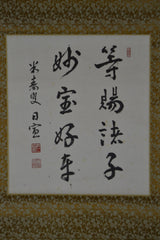 等賜諸子
妙宝好車
米寿叟日宣